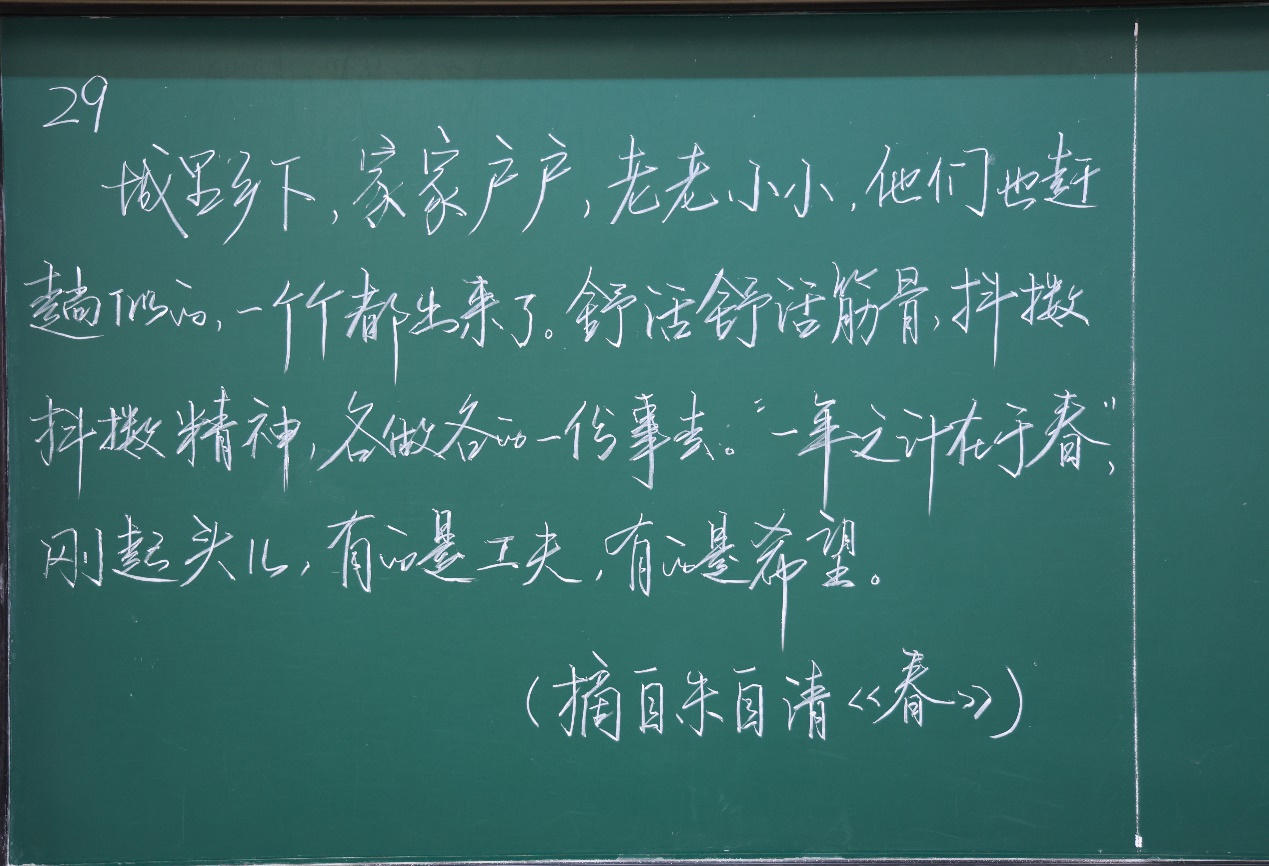 29
城里乡下,家家户户,老老小小,他们也赶
趟似的,一个个都出来了。舒活舒活筋骨,抖擞
抖擞精神,各做各的一份事去。“一年之计在于春”,
刚起头儿,有的是工夫,有的是希望。
(摘自朱自清《春》)